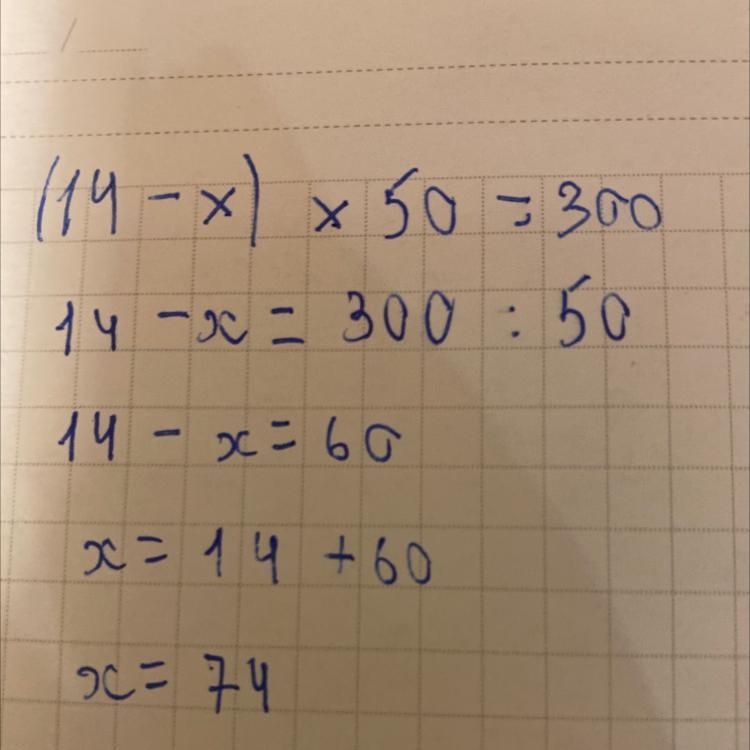 (14 - x) x 50 = 300
14 - x = 300 : 50
14 - x = 60
x = 14 + 60
x = 74